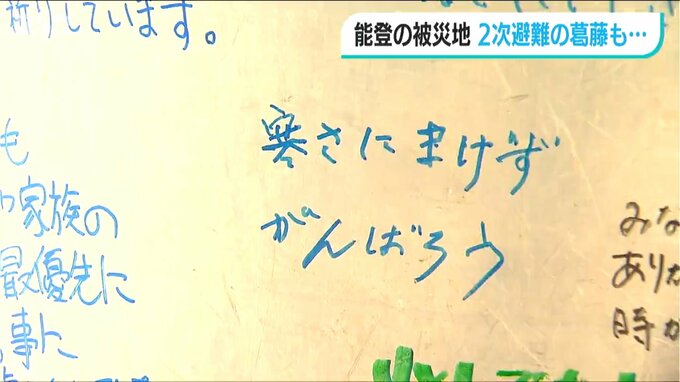 能登の被災地 2次避難の葛藤も…
祈りしています。
寒さにまけず
がんばろう
も
家族の
最優先に
事に
みな
ありが
時が